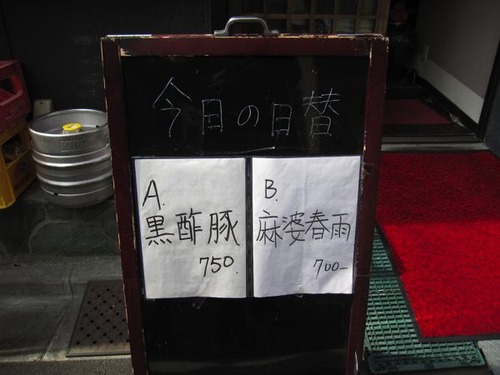 今日の日替
A.
黒酢豚
750.
B.
麻婆春雨
700-